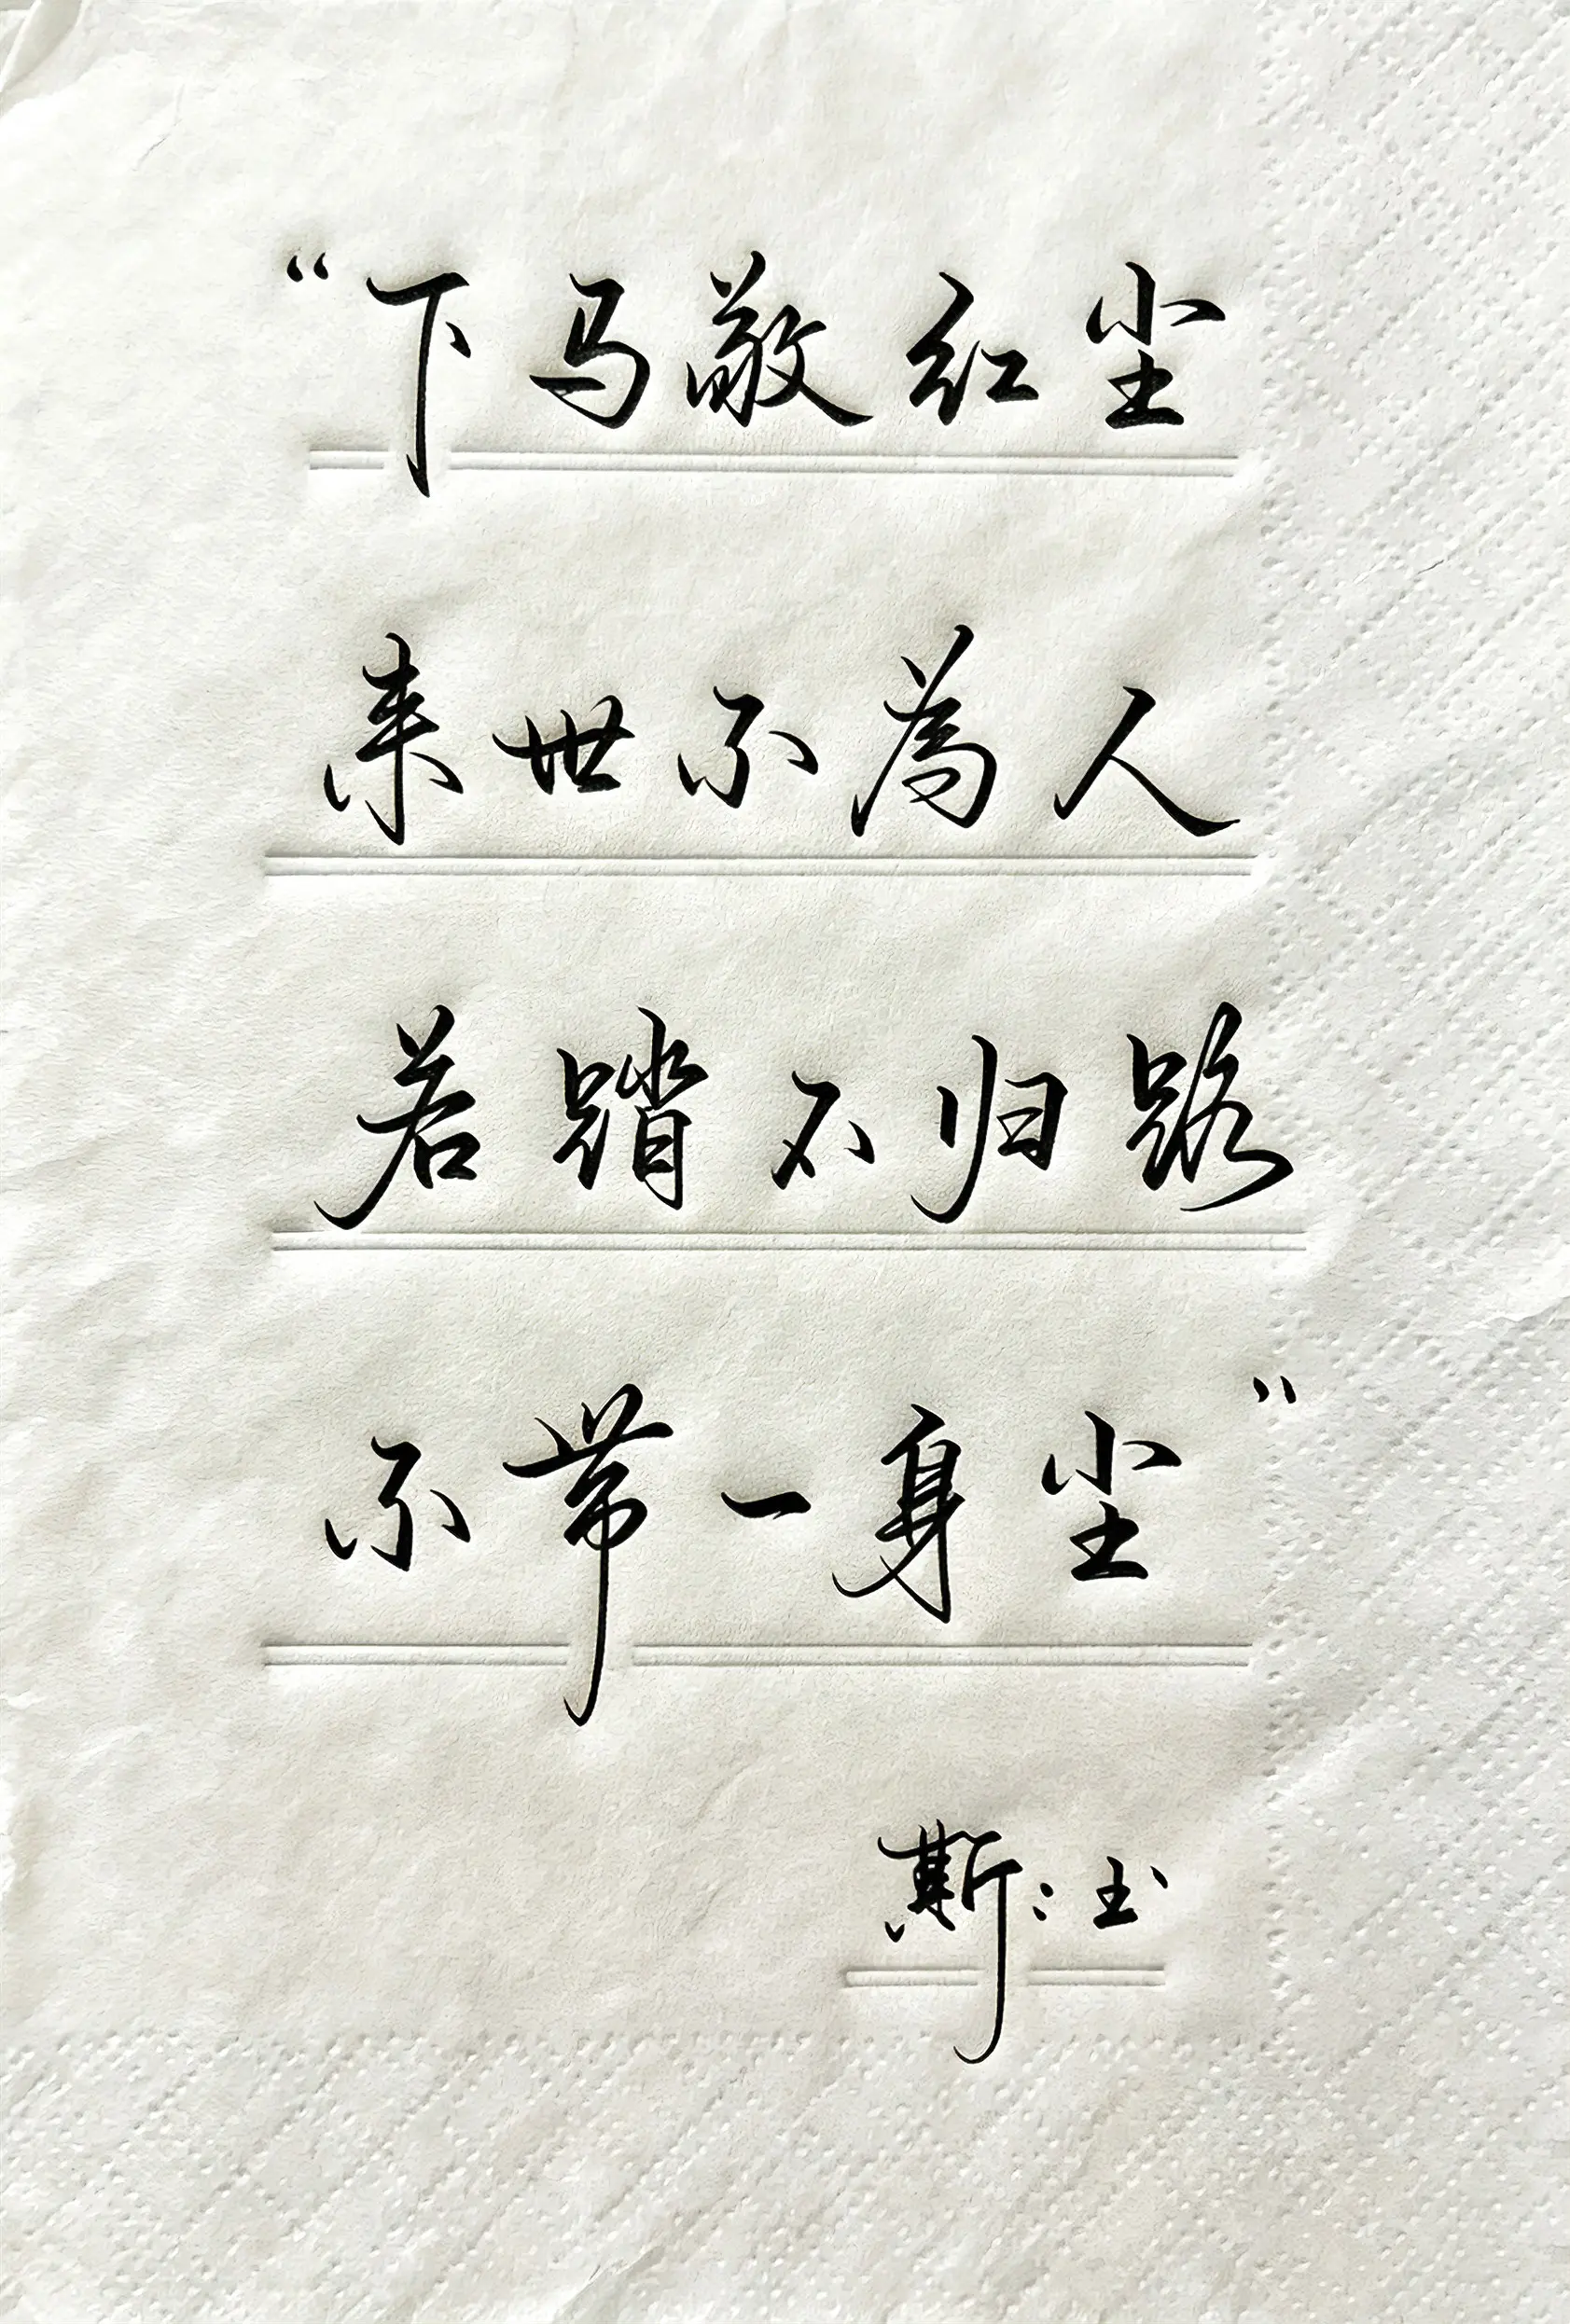 “下马敬红尘
来世不為人
若踏不归路
不带一身尘”
斯：玉